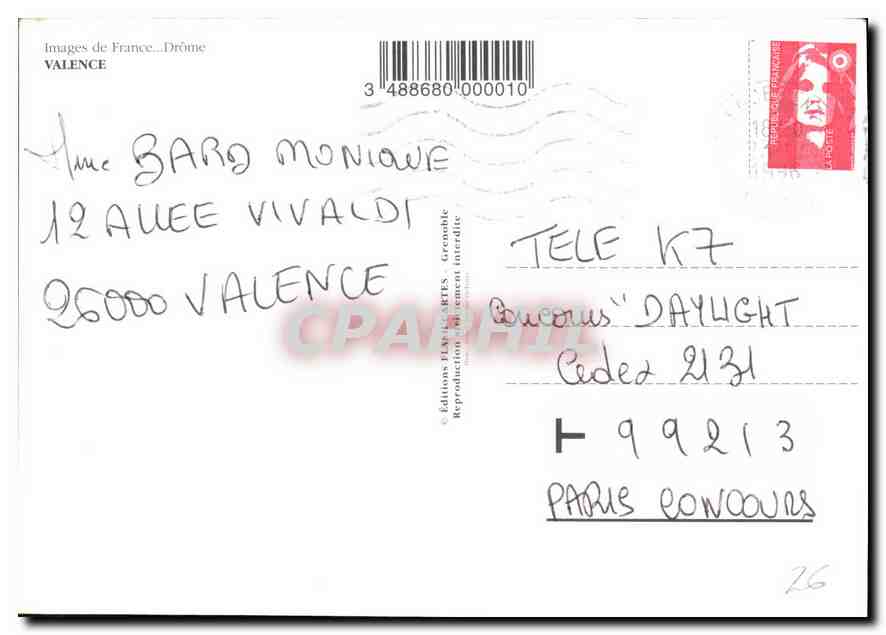 Images de France...Drôme
VALENCE
3 488680 000010
REPUBLIQUE FRANÇAISE
LA POSTE
Mme BARD MONIQUE
12 ALLEE VIVALDI
26000 VALENCE
© Editions FLASH CARTES - Grenoble
Reproduction strictement interdite
CPAPHIL
TELE K7
Concours "DAYLIGHT
Cedex 2131
T 99213
PARIS CONCOURS
26